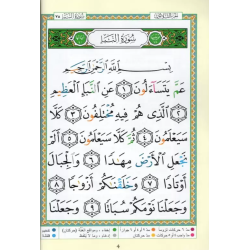 سُورَةُ النَّبَإِ
بِسْمِ اللَّهِ الرَّحْمَٰنِ الرَّحِيمِ
عَمَّ يَتَسَاءَلُونَ ١ عَنِ النَّبَإِ الْعَظِيمِ
٢ الَّذِي هُمْ فِيهِ مُخْتَلِفُونَ ٣ كَلَّا
سَيَعْلَمُونَ ٤ ثُمَّ كَلَّا سَيَعْلَمُونَ ٥ أَلَمْ
نَجْعَلِ الْأَرْضَ مِهَادًا ٦ وَالْجِبَالَ
أَوْتَادًا ٧ وَخَلَقْنَاكُمْ أَزْوَاجًا ٨
وَجَعَلْنَا نَوْمَكُمْ سُبَاتًا ٩ وَجَعَلْنَا